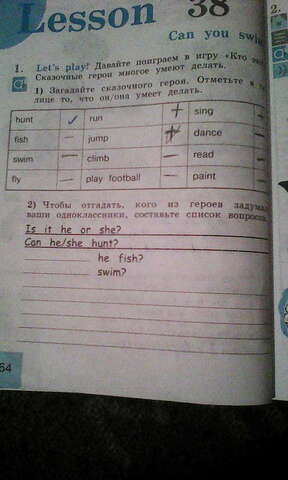 Lesson 38
2.
Can you
1. Let's play! Давайте поиграем в игру «Кто
Сказочные герои многое умеют делать.
1) Загадайте сказочного героя. Отметьте в
лице то, что он/она умеет делать.
hunt ✓ run + sing —
fish — jump + dance —
swim — climb — read —
fly — play football — paint —
2) Чтобы отгадать, кого из героев
ваши одноклассники, составьте список
Is it he or she?
Can he/she hunt?
he fish?
swim?
64